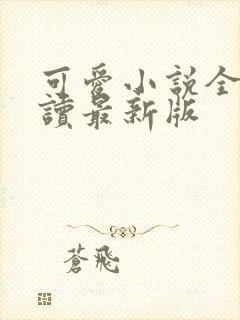 可愛小說全
讀最新版
蒼飛